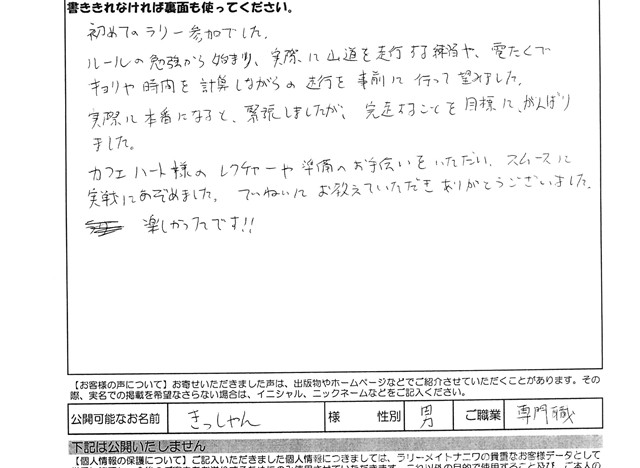 書ききれなければ裏面も使ってください。
初めてのラリー参加でした。
ルールの勉強から始まり、実際に山道を走行する練習や、電たくで
キョリや時間を計算しながらの走行を事前に行って望みました。
実際に本番になると、緊張しましたが、完走することを目標に、がんばり
ました。
カフェハート様のレクチャーや準備のお手伝いをいただい、スムースに
実戦にのぞめました。ていねいにお教えていただきありがとうございました。
楽しかったです!!
【お客様の声について】お寄せいただきました声は、出版物やホームページなどでご紹介させていただくことがあります。その
際、実名での掲載を希望なさらない場合は、イニシャル、ニックネームなどをご記入ください。
公開可能なお名前 きっしゃん 様 性別 男 ご職業 専門職
下記は公開いたしません
【個人情報の保護について】ご記入いただきました個人情報につきましては、ラリーメイトナニワの貴重なお客様データとして